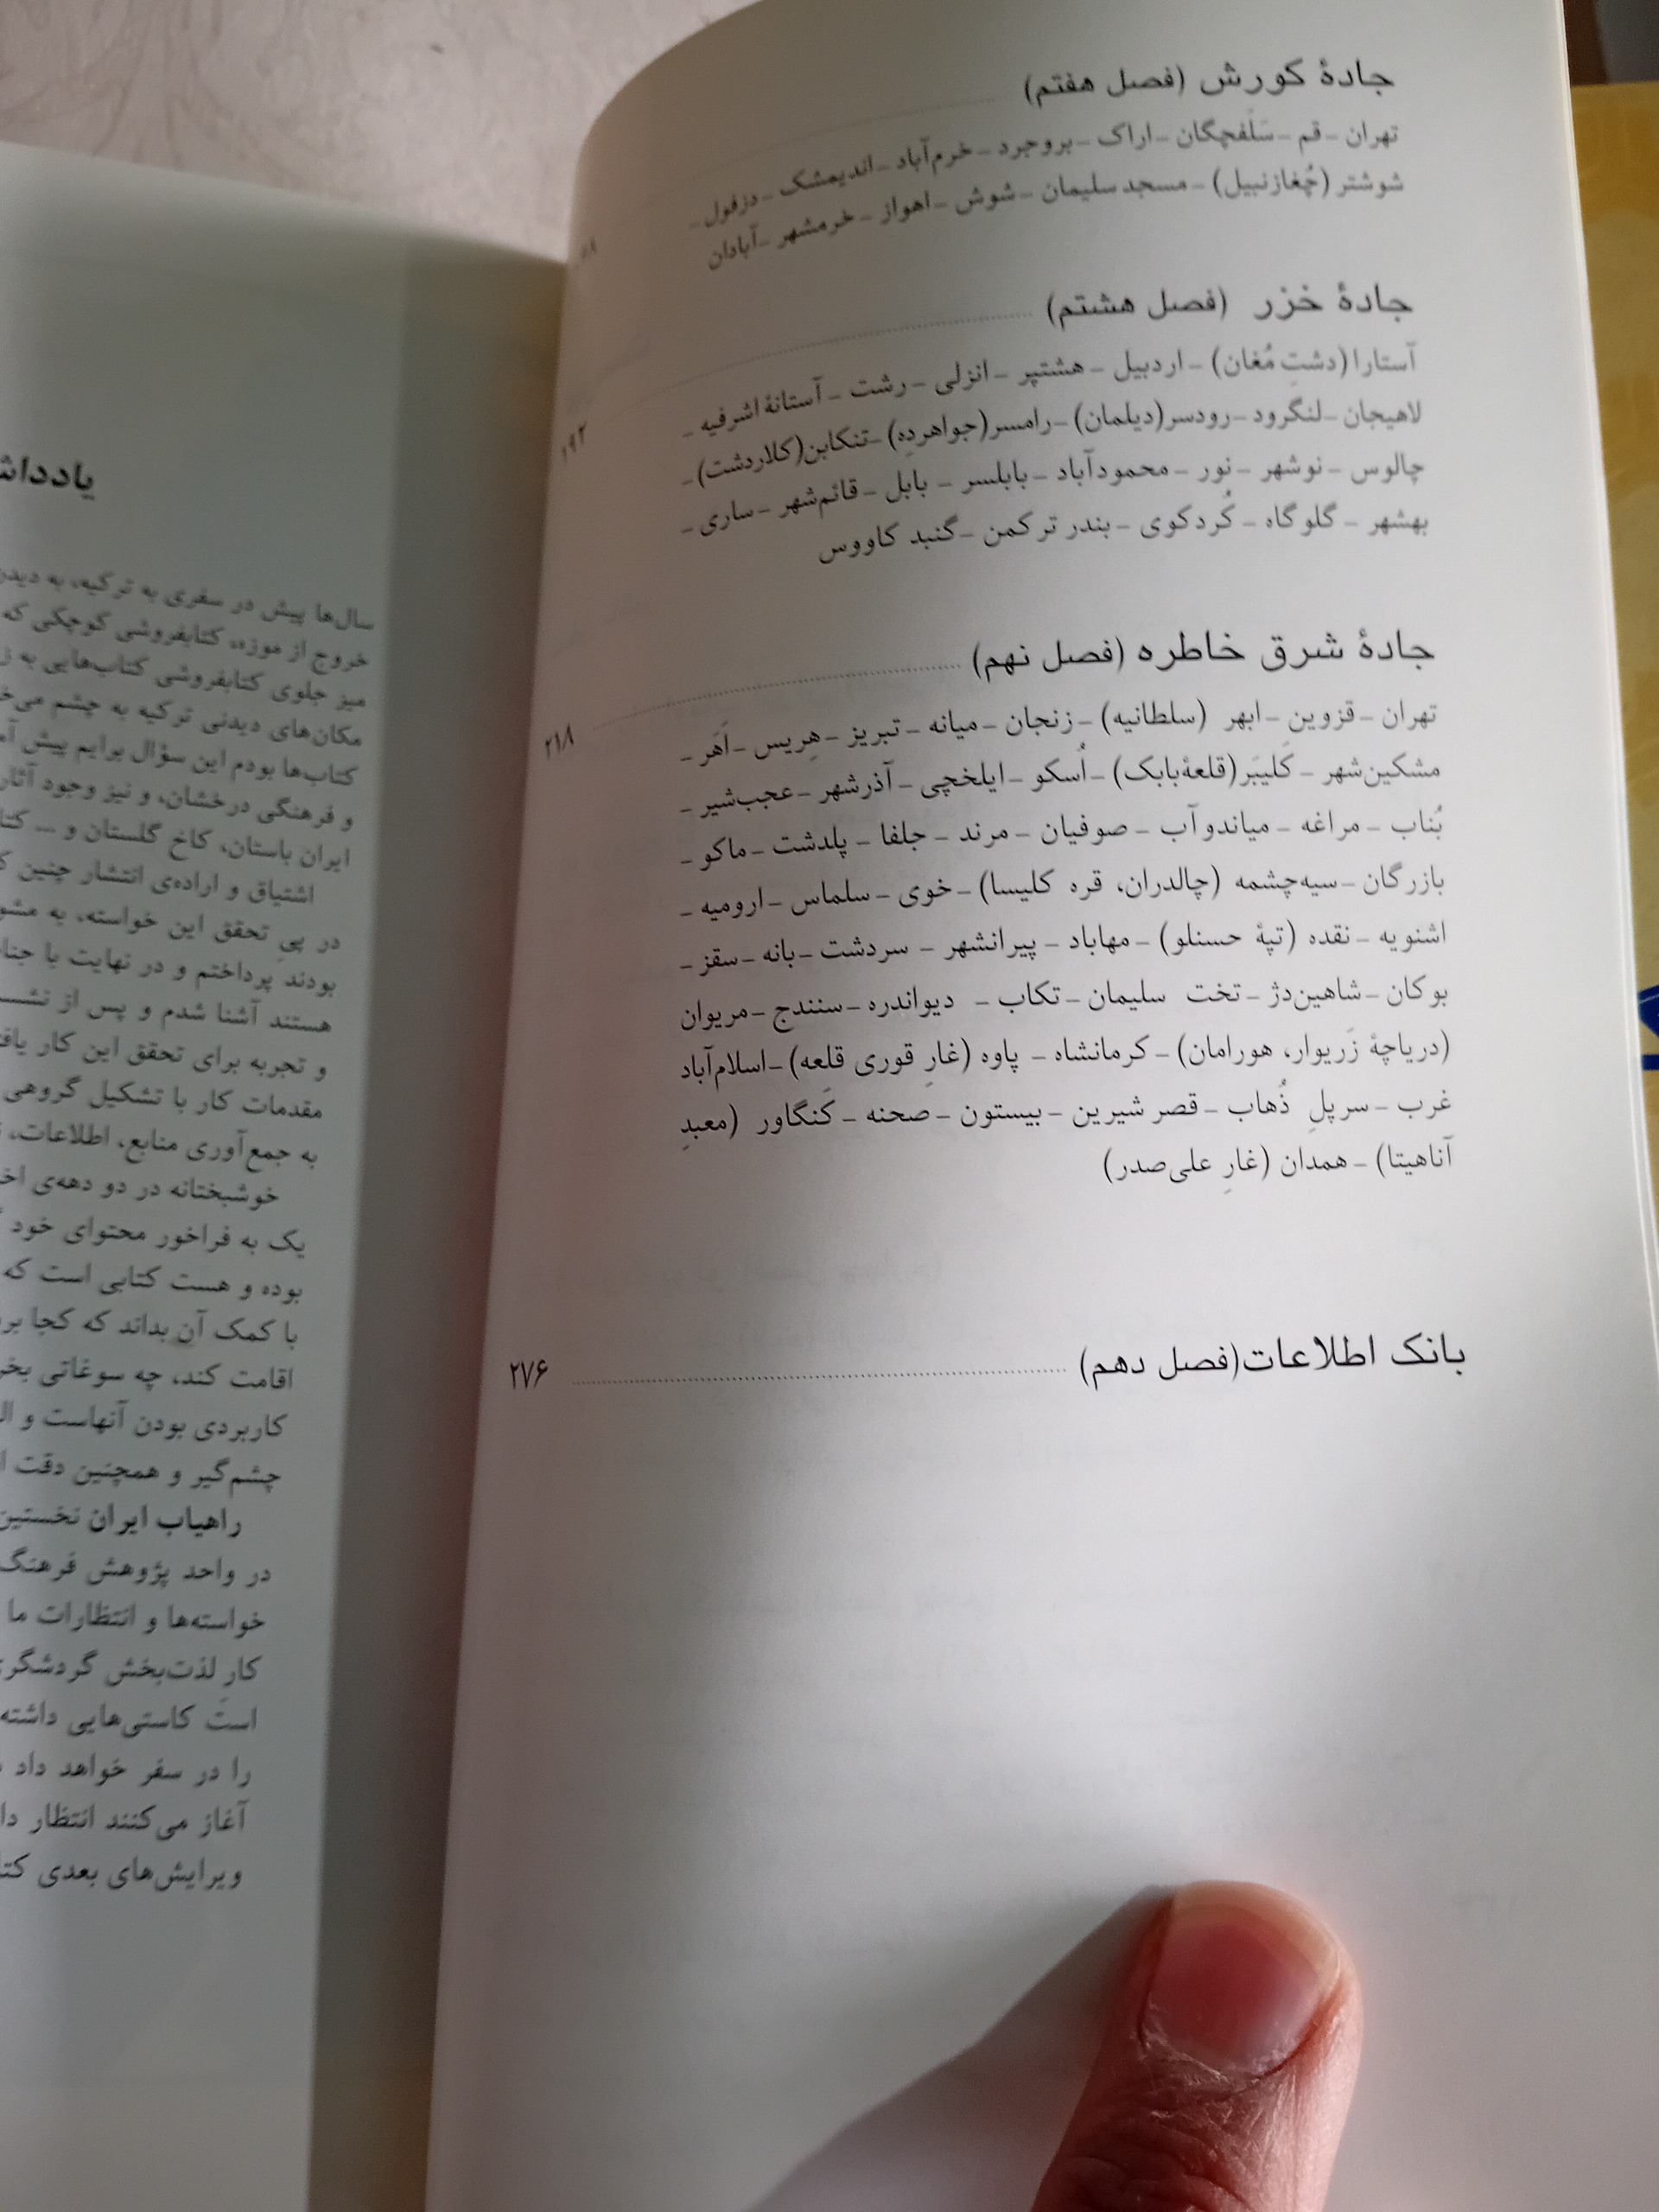 جادهٔ کورش (فصل هفتم)
تهران – قم – سَلَفچگان – اراک – بروجرد – خرم‌آباد – اندیمشک – دزفول –
شوشتر (چُغازنبیل) – مسجد سلیمان – شوش – اهواز – خرمشهر – آبادان
جادهٔ خزر (فصل هشتم) ........ ۱۹۲
آستارا (دشتِ مُغان) – اردبیل – هشتپر – انزلی – رشت – آستانهٔ اشرفیه –
لاهیجان – لنگرود – رودسر (دیلمان) – رامسر (جواهردِه) – تنکابن (کلاردشت) –
چالوس – نوشهر – نور – محمودآباد – بابلسر – بابل – قائم‌شهر – ساری –
بهشهر – گلوگاه – کُردکوی – بندر ترکمن – گنبد کاووس
جادهٔ شرق خاطره (فصل نهم) ........ ۲۱۸
تهران – قزوین – ابهر (سلطانیه) – زنجان – میانه – تبریز – هِریس – اَهَر –
مشکین‌شهر – کَلیبَر (قلعهٔ بابک) – اُسکو – ایلخچی – آذرشهر – عجب‌شیر –
بُناب – مراغه – میاندوآب – صوفیان – مرند – جلفا – پلدشت – ماکو –
بازرگان – سیه‌چشمه (چالدران، قره کلیسا) – خوی – سلماس – ارومیه –
اشنویه – نقده (تپهٔ حسنلو) – مهاباد – پیرانشهر – سردشت – بانه – سقز –
بوکان – شاهین‌دژ – تخت سلیمان – تکاب – دیواندره – سنندج – مریوان
(دریاچهٔ زَریوار، هورامان) – کرمانشاه – پاوه (غارِ قوری قلعه) – اسلام‌آباد
غرب – سرپلِ ذُهاب – قصر شیرین – بیستون – صحنه – کَنگاور (معبدِ
آناهیتا) – همدان (غارِ علی‌صدر)
بانک اطلاعات (فصل دهم) ........ ۲۷۶
سال‌ها پیش در سفری به ترکیه، به دیدن
خروج از موزه، کتابفروشی کوچکی که
میز جلوی کتابفروشی کتاب‌هایی به
مکان‌های دیدنی ترکیه به چشم
کتاب‌ها بودم این سؤال برایم پیش
و فرهنگی درخشان، و نیز وجود آثار
ایران باستان، کاخ گلستان و ...
اشتیاق و اراده‌ی انتشار چنین
در پیِ تحقق این خواسته، به
بودند پرداختم و در نهایت با
هستند آشنا شدم و پس از
و تجربه برای تحقق این کار
مقدمات کار با تشکیل گروهی
به جمع‌آوری منابع، اطلاعات،
خوشبختانه در دو دهه‌ی
یک به فراخور محتوای خود
بوده و هست کتابی است که
با کمک آن بداند که کجا
اقامت کند، چه سوغاتی
کاربردی بودن آنهاست و
چشم‌گیر و همچنین دقت
راهیاب ایران نخستین
در واحد پژوهش فرهنگ
خواسته‌ها و انتظارات ما
کارِ لذت‌بخش
است کاستی‌هایی داشته
را در سفر خواهد داد
آغاز می‌کنند انتظار
ویرایش‌های بعدی